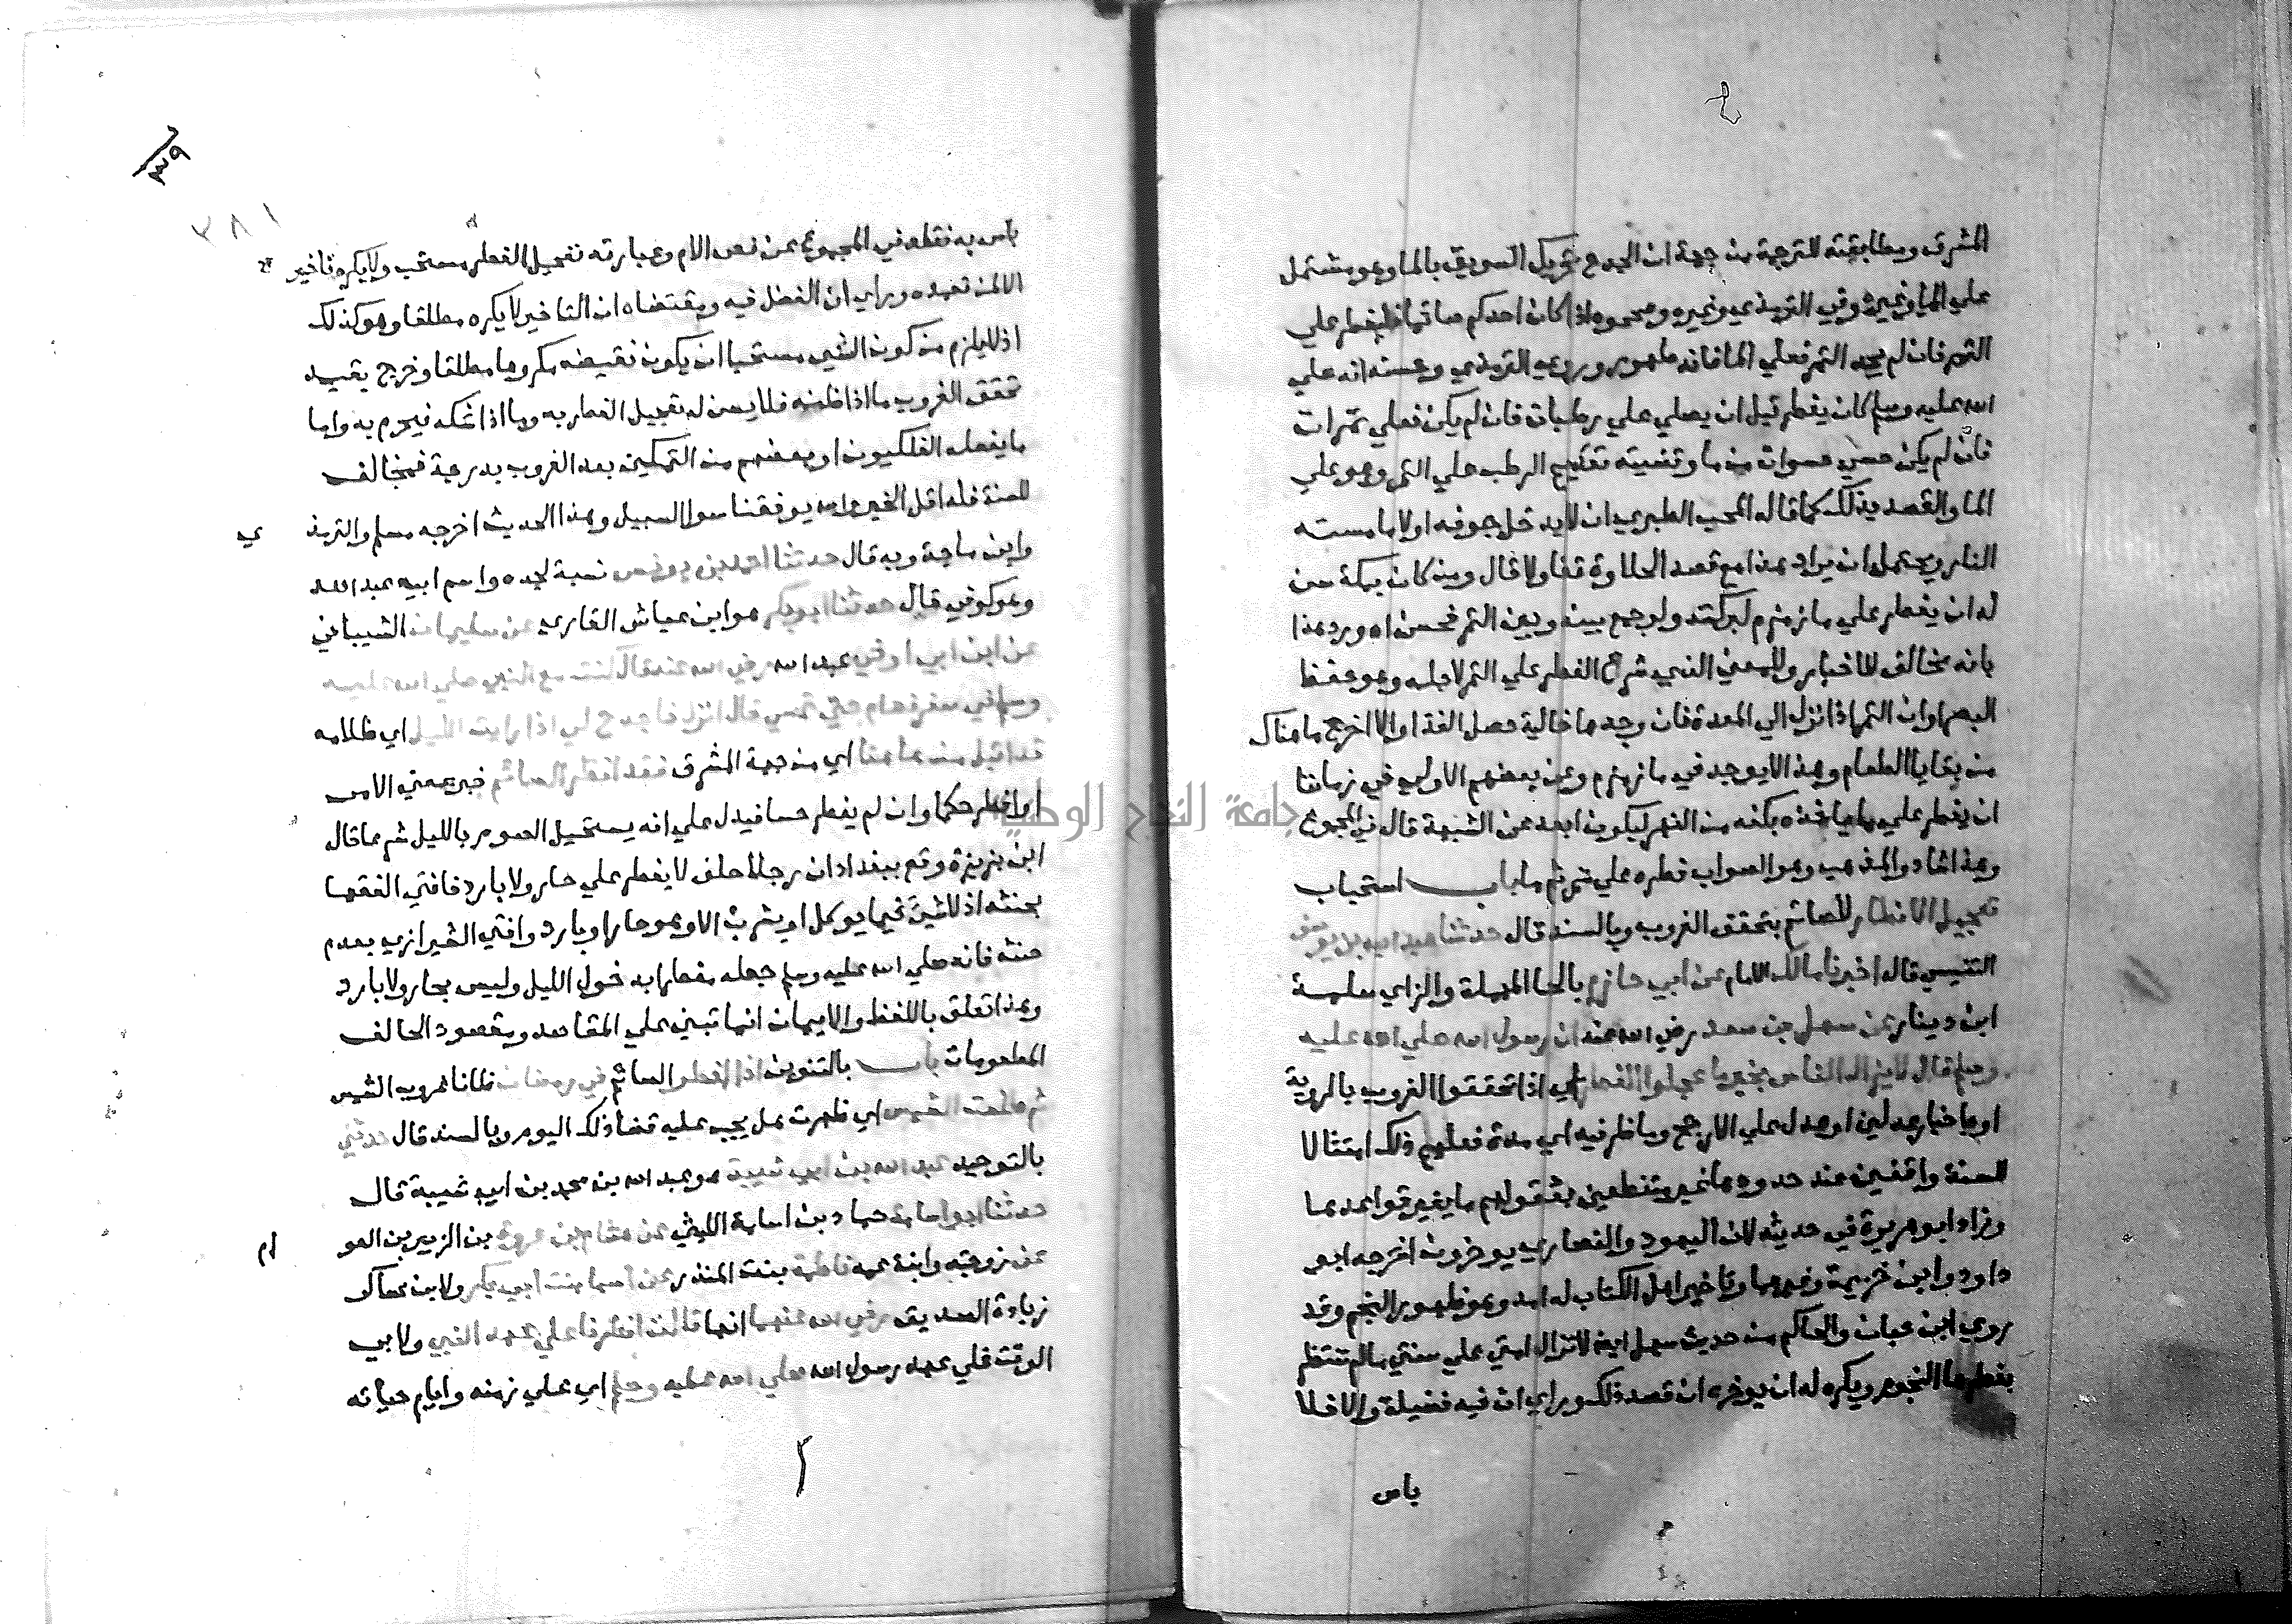 المشرق ومطابقته للترجمة من جهة ان الجدح تحريك السويق بالما وهو مشتمل
علي الما وغيره وفي الترمذي وغيره وصححوه اذا كان احدكم صائما فليفطر علي
التمر فان لم يجد التمر فعلي الما فانه طهور وروي الترمذي وحسنه انه صلي
الله عليه وسلم كان يفطر قبل ان يصلي علي رطبات فان لم يكن فعلي تمرات
فان لم يكن حسي حسوات من ما وقضيته تقديم الرطب علي التمر وهو علي
الما والقصد بذلك كما قاله المحب الطبري ان لا يدخل جوفه اولا ما مسته
النار ويحتمل ان يراد هذا مع قصد الحلاوة تفاولا قال ومن كان بمكة سن
له ان يفطر علي ما زمزم لبركته ولو جمع بينه وبين التمر فحسن اه ورد هذا
بانه مخالف للاخبار وللمعني الذي شرع الفطر علي التمر لاجله وهو حفظ
البصر وان التمر اذا نزل الي المعدة فان وجدها خالية حصل الغذا والا اخرج ما هناك
من بقايا الطعام وهذا لا يوجد في ما زمزم وعن بعضهم الاولي في زماننا
ان يفطر علي ما ياخذه بكفه من النهر ليكون ابعد عن الشبهة قال في المجموع
وهذا شاذ والمذهب وهو الصواب فطره علي تمر ثم ما باب استحباب
تعجيل الافطار للصائم بتحقق الغروب وبالسند قال حدثنا عبد الله بن يوسف
التنيسي قال اخبرنا مالك الامام عن ابي حازم بالحا المهملة والزاي سلمة
ابن دينار عن سهل بن سعد رضي الله عنه ان رسول الله صلي الله عليه
وسلم قال لا يزال الناس بخير ما عجلوا الفطر اي اذا تحققوا الغروب بالروية
او باخبار عدلين او عدل علي الارجح وما ظرفيه اي مدة فعلهم ذلك امتثالا
للسنة واقفين عند حدودها غير متنطعين بعقولهم ما يغير قواعدها
وزاد ابو هريرة في حديثه لان اليهود والنصاري يوخرون اخرجه ابو
داود وابن خزيمة وغيرهما وتاخير اهل الكتاب له امد وهو ظهور النجم وقد
روي ابن حبان والحاكم من حديث سهل ايضا لا تزال امتي علي سنتي ما لم تنتظر
بفطرها النجوم ويكره له ان يوخره ان قصد ذلك وراي ان فيه فضيلة والا فلا
باس
٣٩
٣٨١
باس به نقله في المجموع عن نص الام وعبارته تعجيل الفطر مستحب ولا يكره تاخيره
الا لمن تعمده وراي ان الفضل فيه ومقتضاه ان التاخير لا يكره مطلقا وهو كذلك
اذ لا يلزم من كون الشي مستحبا ان يكون نقيضه مكروها مطلقا وخرج بقيد
تحقق الغروب ما اذا ظنه فلا يسن له تعجيل الفطر به وما اذا شكه فيحرم به واما
ما يفعله الفلكيون او بعضهم من التمكين بعد الغروب بدرجة فمخالف
للسنة فلذا قل الخير والله يوفقنا سوا السبيل وهذا الحديث اخرجه مسلم والترمذ ي
وابن ماجة وبه قال حدثنا احمد بن يونس نسبة لجده واسم ابيه عبد الله
وهو كوفي قال حدثنا ابو بكر هو ابن عياش القاري عن سليمان الشيباني
عن ابن ابي اوفي عبد الله رضي الله عنه قال كنت مع النبي صلي الله عليه
وسلم في سفر فصام حتي امسي قال انزل فاجدح لي اذا رايت الليل اي ظلامه
قد اقبل من هاهنا اي من جهة المشرق فقد افطر الصائم خبر بمعني الامر
او افطر حكما وان لم يفطر حسا فيدل علي انه يستحيل الصوم بالليل شرعا قال
ابن بزيزة وقع ببغداد ان رجلا حلف لا يفطر علي حار ولا بارد فافتي الفقها
بحنثه اذ لا شي مما يوكل او يشرب الا وهو حار او بارد وافتي الشيرازي بعدم
حنثه فانه صلي الله عليه وسلم جعله مفطرا بدخول الليل وليس بحار ولا بارد
وهذا تعلق باللفظ والايمان انما تبني علي المقاصد ومقصود الحالف
المطعومات باب بالتنوين اذا افطر الصائم في رمضان ظانا غروب الشمس
ثم طلعت الشمس اي ظهرت هل يجب عليه قضا ذلك اليوم وبالسند قال حدثني
بالتوحيد عبد الله بن ابي شيبة هو عبد الله بن محمد بن ابي شيبة قال
حدثنا ابو اسامة حماد بن اسامة الليثي عن هشام بن عروة بن الزبير بن العو ام
عن زوجته وابنة عمه فاطمة بنت المنذر عن اسما بنت ابي بكر ولابن عساكر
زيادة الصديق رضي الله عنهما انها قالت افطرنا علي عهد النبي ولابي
الوقت علي عهد رسول الله صلي الله عليه وسلم اي علي زمنه وايام حياته
جامعة النجاح الوطنية